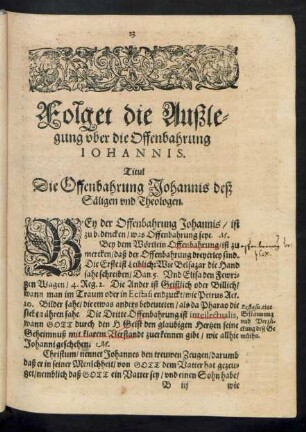 13
Folget die Außle-
gung vber die Offenbahrung
IOHANNIS.
Titul
Die Offenbahrung Johannis deß
Säligen vnd Theologen.
BEy der Offenbahrung Johannis / ist
zu bedencken / was Offenbahrung seye. ꝛc.
Bey dem Wörtlein Offenbahrung ist zu
mercken / daß der Offenbahrung dreyerley sind.
Die Erst ist Leiblich: Wie Belsazar die Hand
sahe schreiben / Dan. 5. Vnd Elisa den Fewri-
gen Wagen / 4. Reg. 2. Die Ander ist Geistlich oder Bildlich /
wann man im Traum oder in Ecstasi entzuckt / wie Petrus Act.
10. Bilder sahe / die etwas anders bedeuteten / als da Pharao die
sieben ähren sahe. Die Dritte Offenbahrung ist intellectualis,
wann GOTT durch den H. Geist den glaubigen Hertzen seine
Geheimnuß mit klarem Verstande zuerkennen gibt / wie allhie
Johanni geschehen. ꝛc.
Christum / nennet Johannes den trewen Zeugen / darumb
daß er in seiner Menschheit / von GOTT dem Vatter hat ge-
zeuget / nemblich daß GOTT ein Vatter sey / vnd einen Sohn habe /
B iij wie